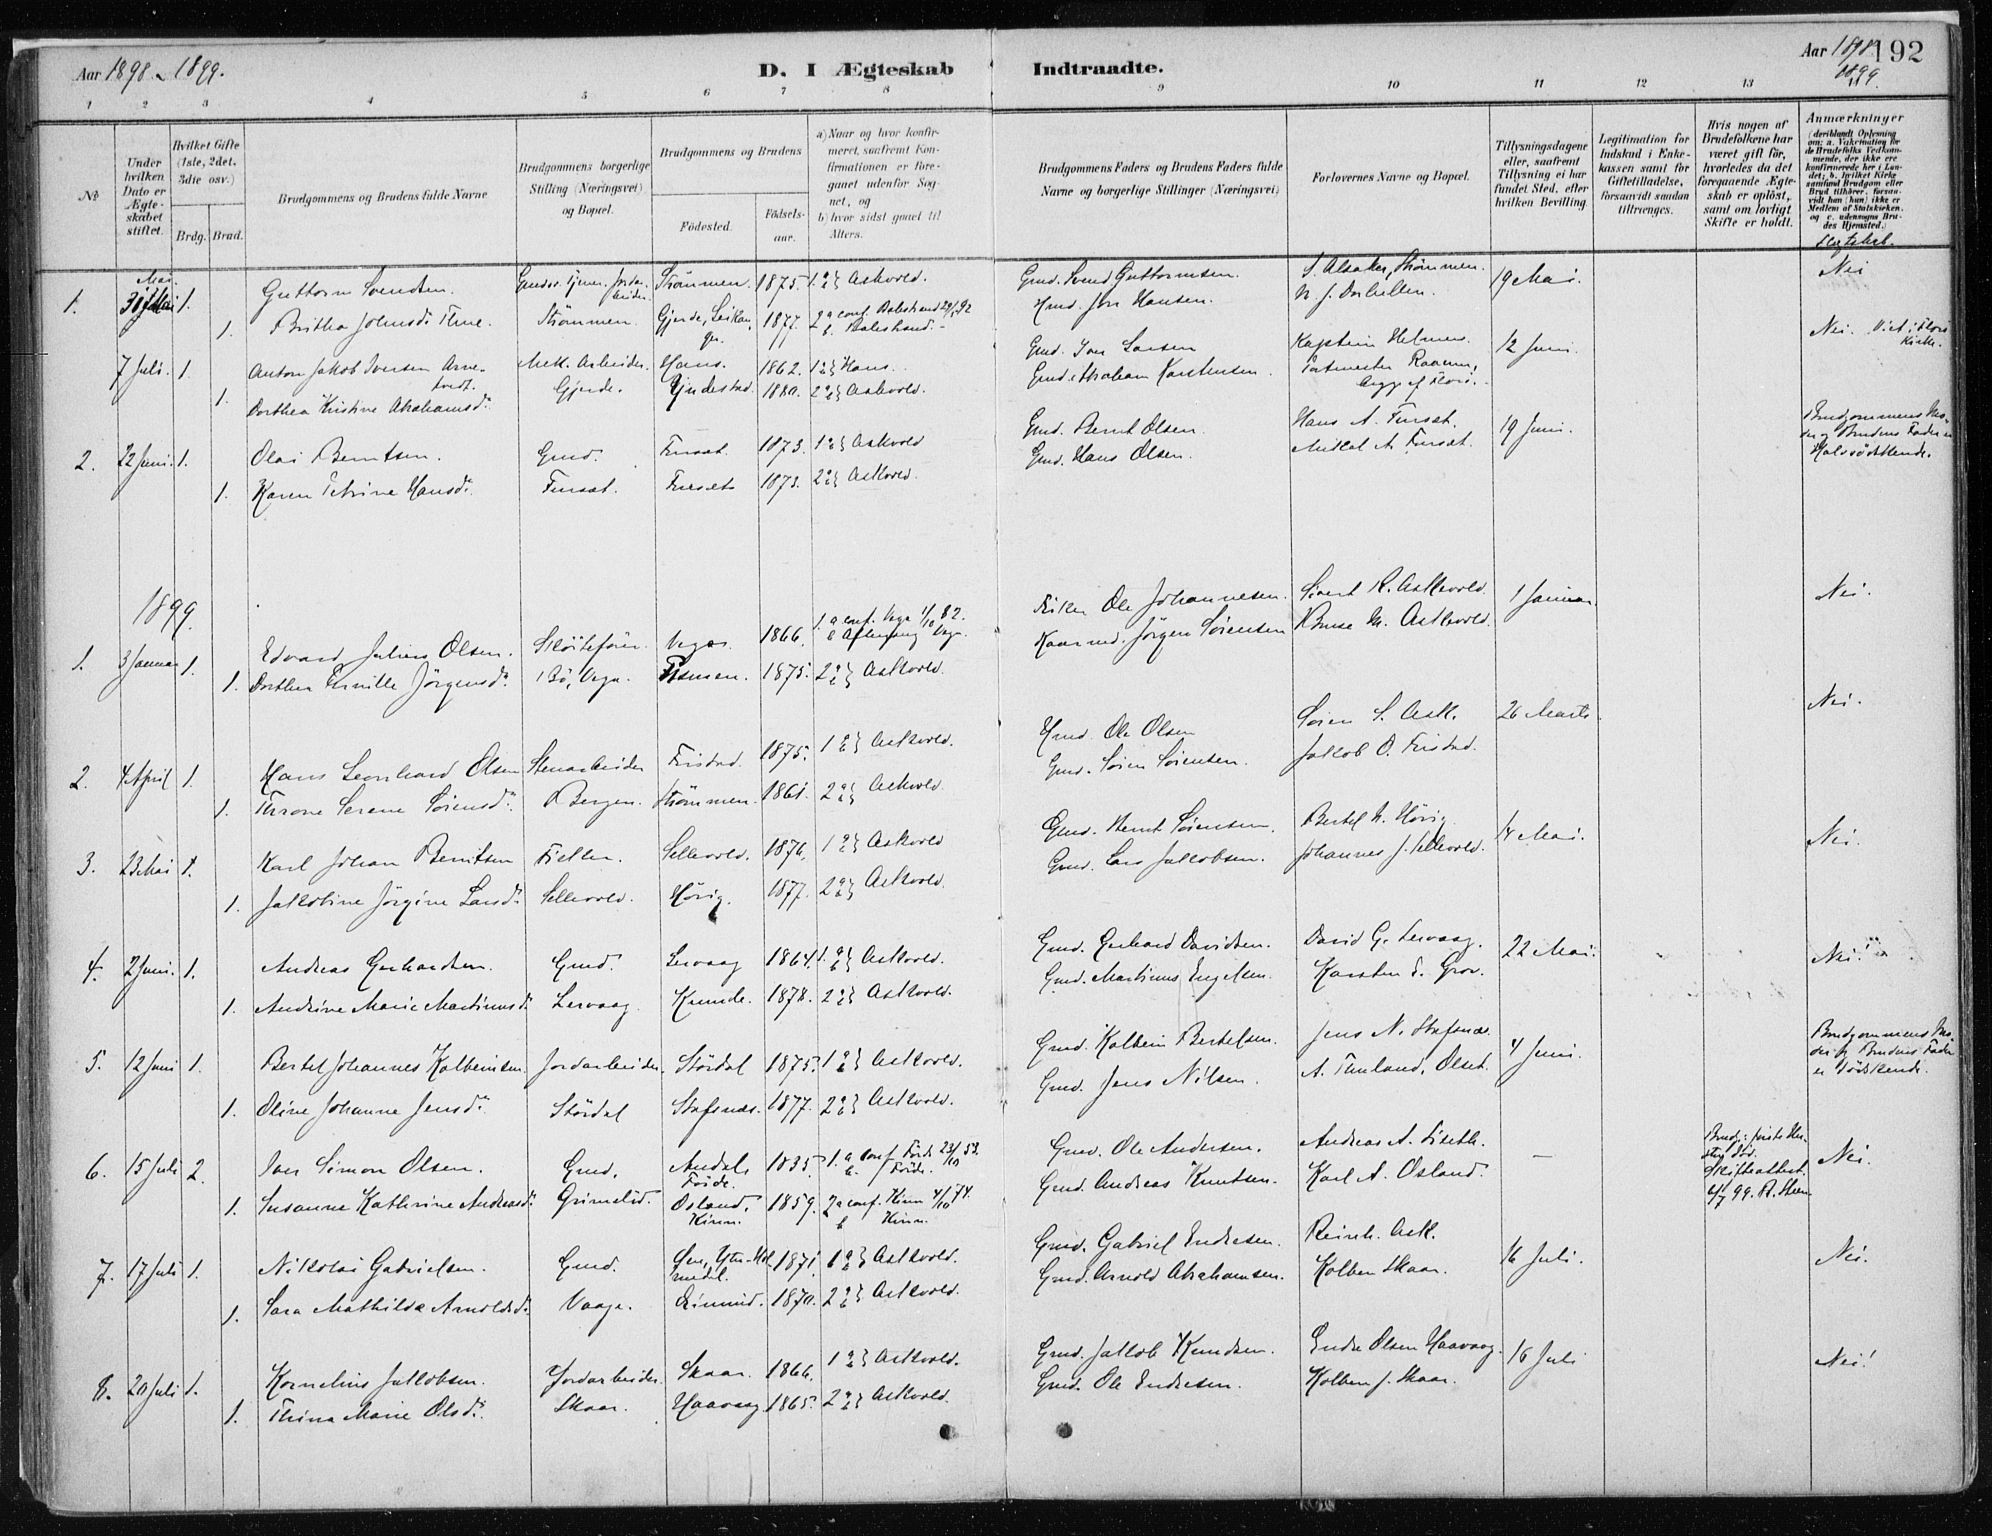 Aar 1898 - 1899.
D. I Ægteskab Indtraadte.
Aar 1898
1899.
192
1 2 3 4 5 6 7 8 9 10 11 12 13 14
No
Under hvilken Dato er Ægteskabet stiftet.
Hvilket Gifte (1ste, 2det, 3die osv.)
Brdg. Brud.
Brudgommens og Brudens fulde Navne
Brudgommens borgerlige Stilling (Næringsvei) og Bopæl.
Brudgommens og Brudens
Fødested.
Fødselsaar.
a) Naar og hvor konfirmeret, saafremt Konfirmationen er foregaaet udenfor Sognet, og
b) hvor sidst gaaet til Alters.
Brudgommens Faders og Brudens Faders fulde Navne og borgerlige Stillinger (Næringsvei)
Forlovernes Navne og Bopæl.
Tillysningsdagene eller, saafremt Tillysning ei har fundet Sted, efter hvilken Bevilling.
Legitimation for Indskud i Enkekassen samt for Giftetilladelse, forsaavidt saadan tiltrænges.
Hvis nogen af Brudefolkene har været gift før, hvorledes da det foregaaende Ægteskab er opløst, samt om lovligt Skifte er holdt.
Anmærkninger (deriblandt Oplysning om: a. Vakcination for de Brudefolks Vedkommende, der ikke ere konfirmerede her i Landet; b. hvilket Kirkesamfund Brudgom eller Brud tilhører, forsaavidt han (hun) ikke er Medlem af Statskirken, og c. udensogns Brudes Hjemsted.)
Slegtskab.
1. Mai 1. Guttorm Svendsen. Strømmen. 1875. 1 a b } Askvold. Gmd. Svend Guttormsen. S. Alsaker, Strømmen. 19 Mai. Nei
1. Britha Johnsd. Thue. Strømmen. Gjerde, 1877. 2 a conf. Balestrand 92 b. Balestrand. Hmd. Jon Hansen.
7 Juli. 1. Anton Jakob Iversen Mek. Arbeider. Hans. 1862. 1 a b } Hans. Gmd. Iver Larsen Kaptein Helmers. 12 Juni. Nei. Viet i Florø Kirke.
1. Dorthea Kristine Abrahamsd. Gjerde. 1880. 2 a b } Askvold. Gmd. Abraham Karstensen.
2. 22 Juni. 1. Olai Berntsen. Gmd. Fursæt. 1873. 1 a b } Askvold Gmd. Bernt Olsen. Hans A. Fursæt. 19 Juni. Brudgommens Moder og Brudens Fader er Halvsødskende.
1. Karen Petrine Hansd. Fursæt. Fursæt. 1873. 2 a b } Askvold. Gmd. Hans Olsen. Mikal A. Fursæt.
1899.
1. 3 Januar 1. Edvard Julius Olsen. Vega. 1866. 1. a conf. Vega 1/10 82. Ole Johannesen. Sivert R. Askvold. 1 Januar. Nei.
1. Dorthea Jørgensd. Bø, Vega. 1875. 2 a b } Askvold. Kaarmd. Jørgen Sørensen Kruse M. Askvold.
2. 4 April 1. Hans Leonhard Olsen Stenarbeider Fristad. 1875. 1 a b } Askvold. Hmd. Ole Olsen Søren S. Ask. 26 Marts. Nei.
1. Throne Serene Sørensd. Bergen. Strømmen. 1861. 2 a b } Askvold Gmd. Søren Sørensen. Jakob O. Fristad.
3. 23 Mai 1. Karl Johan Berntsen Fisker. Sellevold. 1876. 1 a b } Askvold Gmd. Bernt Sørensen. Bertel N. Hørig 14 Mai. Nei.
1. Jakobine Jørgine Larsd. Sellevold. Hørig. 1877. 2 a b } Askvold. Gmd. Lars Jakobsen. Johannes J. Sellevold.
4. 2 Juni. 1. Andreas Gerhardsen. Gmd. Lervaag 1864. 1. a b } Askvold. Gmd. Gerhard Davidsen. David G. Lervaag. 22 Mai. Nei.
1. Andrine Marie Martinusd. Lervaag. 1878. 2 a b } Askvold. Gmd. Martinus Engelsen. Karsten E. Grov.
5. 12 Juni 1. Bertel Johannes Kolbeinsen Jordarbeider. Stordal 1875. 1 a b } Askvold. Gmd. Kolbein Bertelsen. Jens N. Stafsnæs. 4 Juni. Brudgommens Moder og Brudens Fader er Sødskende.
1. Oline Johanne Jensd. Stordal Stafsnæs. 1877. 2 a b } Askvold. Gmd. Jens Nilsen. A. Timland, Olset.
6. 15 Juli 2. Iver Simon Olsen. Gmd. Andal, Førde. 1835. 1. a conf Førde 23/10 53. b. Førde. Gmd. Ole Andersen. Andreas A. Liseth. — Nei.
1. Susanne Kathrine Andreasd. Grimelid. Osland, Kinn. 1859. 2 a conf. Kinn 4/10 74. b Kinn. Gmd. Andreas Knutsen. Karl A. Osland. Skifteattest 6/7 99.
7. 17 Juli 1. Nikolai Gabrielsen. Gmd. 1871. 1 a b } Askvold. Gmd. Gabriel Endresen. Reinh. Ask. 16 Juli. Nei.
1. Sara Mathilde Arnoldsd. Vaage. Eimind. 1870. 2 a b } Askvold. Gmd. Arnold Abrahamsen. Kolben Skaar.
8. 20 Juli 1. Kornelius Jakobsen. Jordarbeider. Skaar. 1866. 1 a b } Askvold. Gmd. Jakob Knudsen. Endre Olsen Haavaag. 16 Juli Nei!
1. Thina Marie Olsd. Skaar. Haavaag 1865. 2 a b } Askvold. Gmd. Ole Endresen. Kolben J. Skaar.